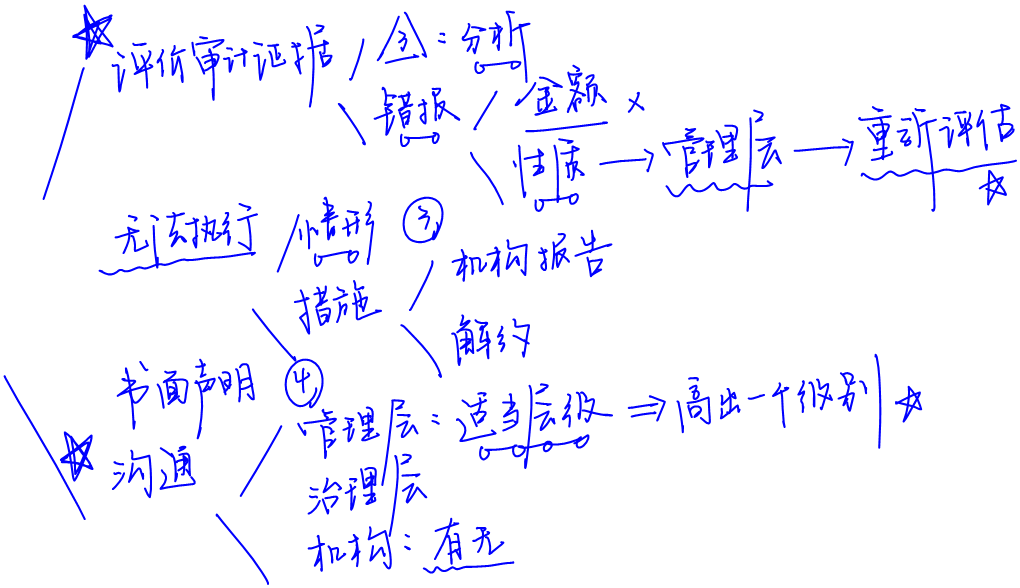 评价审计证据 ③:分析
错报 金额 ×
性质 → 管理层 → 重新评估
无法执行 情形 ③
措施 机构报告
解约
书面声明 ④
沟通 管理层:适当层级 ⇒ 高出一个级别
治理层
机构:有无